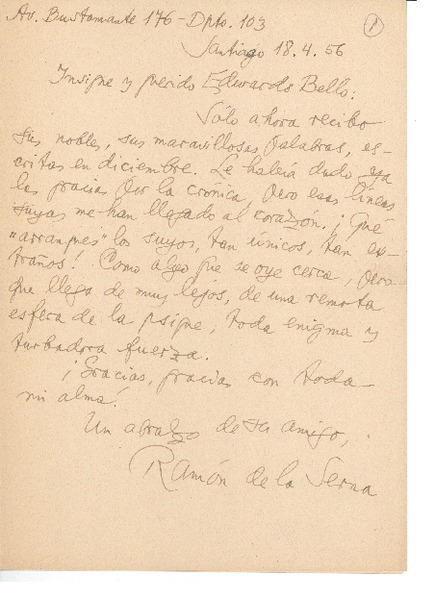 Av. Bustamante 176 - Dpto. 103
1
Santiago 18.4.56
Insigne y querido Edwards Bello:
Sólo ahora recibo
sus nobles, sus maravillosas palabras, es-
critas en diciembre. Le había dado ya
las gracias por la crónica, pero esas líneas
suyas me han llegado al corazón. ¡Qué
"arranques" los suyos, tan únicos, tan ex-
traños! Como algo que se oye cerca, pero
que llega de muy lejos, de una remota
esfera de la psique, toda enigma y
turbadora fuerza.
¡Gracias, gracias con toda
mi alma!
Un abrazo de su amigo,
Ramón de la Serna